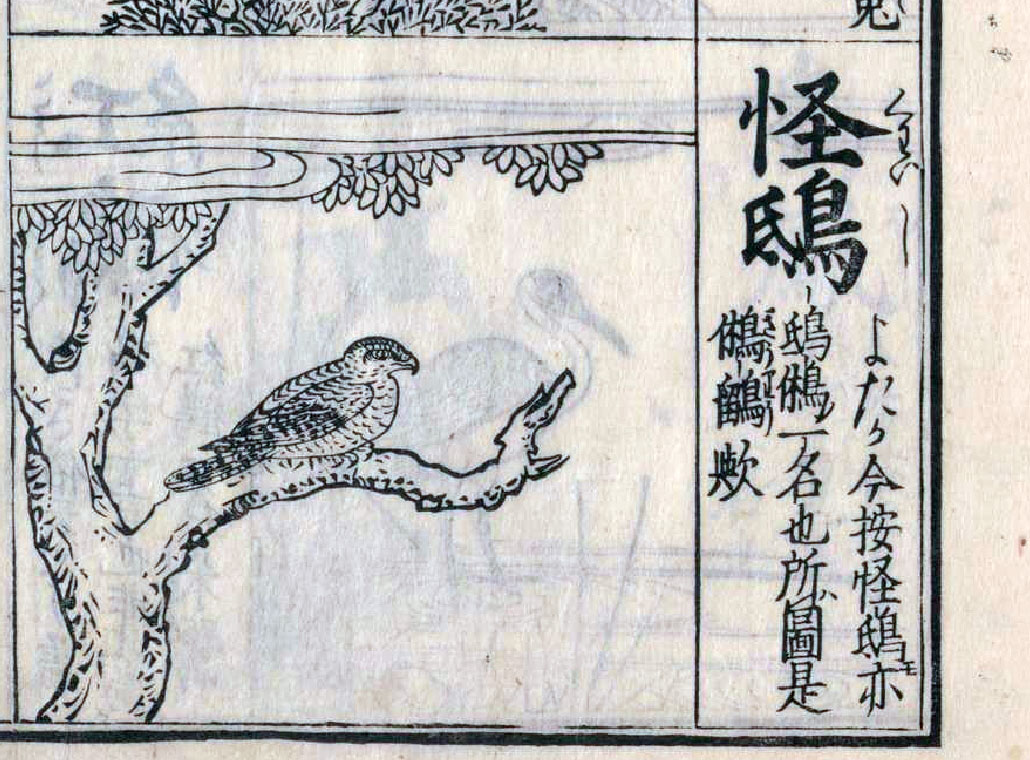 兎
くわいし
怪鴟
よたか今按怪鴟亦モ
鴟鵂ノ一名也所圖是
鵂鶹歟